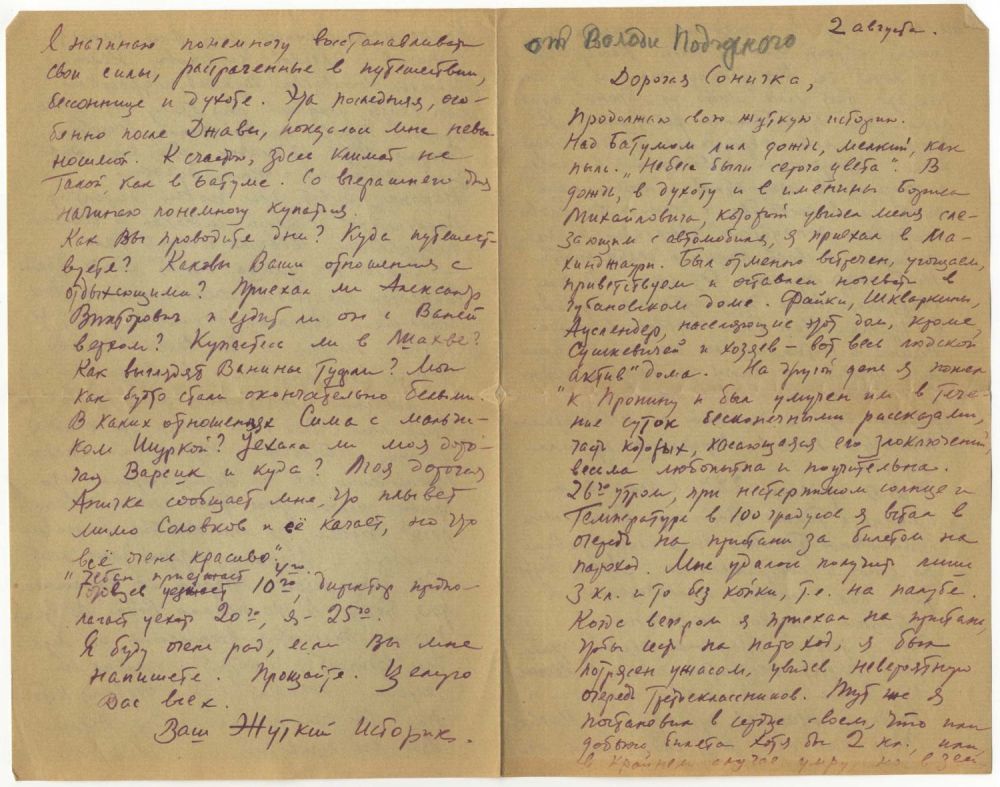 Я начинаю понемногу восстанавливать
свои силы, растраченные в путешествии,
бессоннице и духоте. Эта последняя, осо-
бенно после Джавы, показалась мне невы-
носимой. К счастью, здесь климат не
такой, как в Батуме. Со вчерашнего дня
начинаю понемногу купаться.
Как Вы проводите дни? Куда путешест-
вуете? Каковы Ваши отношения с
отдыхающими? Приехал ли Александр
Викторович и ездит ли он с Ваней
верхом? Купаетесь ли в
Как выглядят Ванины туфли? Мои
как будто стали окончательно белыми.
В каких отношениях Сима с мальчи-
ком Шуркой? Уехала ли моя доро-
гая Варсик и куда? Моя дорогая
Аничка сообщает мне, что плывет
мимо Соловков и её качает, но что
"всё очень красиво".
приезжает 4го
10го, директор предпо-
лагает уехать 20го, я – 25го.
Я буду очень рад, если Вы мне
напишете. Прощайте. Целую
Вас всех.
Ваш Жуткий Историк.
от Володи
2 августа.
Дорогая Соничка,
Продолжаю свою жуткую историю.
Над Батумом лил дождь, мелкий, как
пыль. "Небеса были серого цвета". В
дождь, в духоту и в именины Бориса
Михайловича, который увидел меня сле-
зающим с автомобиля, я приехал в Ма-
хинджаури. Был отменно встречен, угощаем,
приветствуем и оставлен ночевать в
доме. Файки, Шкваркины,
Ауслендер, населяющие этот дом, кроме
Сушкевичей и хозяев – вот весь людской
"актив" дома. На другой день я попал
к Пронину и был умучен им в тече-
ние суток бесконечными рассказами,
часть которых, касающаяся его злоключений,
весьма любопытна и поучительна.
26го утром, при нестерпимом солнце и
температуре в 100 градусов я встал в
очередь на пристани за билетом на
пароход. Мне удалось получить лишь
3 кл. и то без койки, т.е. на палубе.
Когда вечером я приехал на пристань,
чтобы сесть на пароход, я был
потрясен ужасом, увидев невероятную
очередь третьеклассников. Тут же я
постановил в сердце своем, что или
добьюсь билета хотя бы 2 кл., или,
в крайнем случае умру, но в